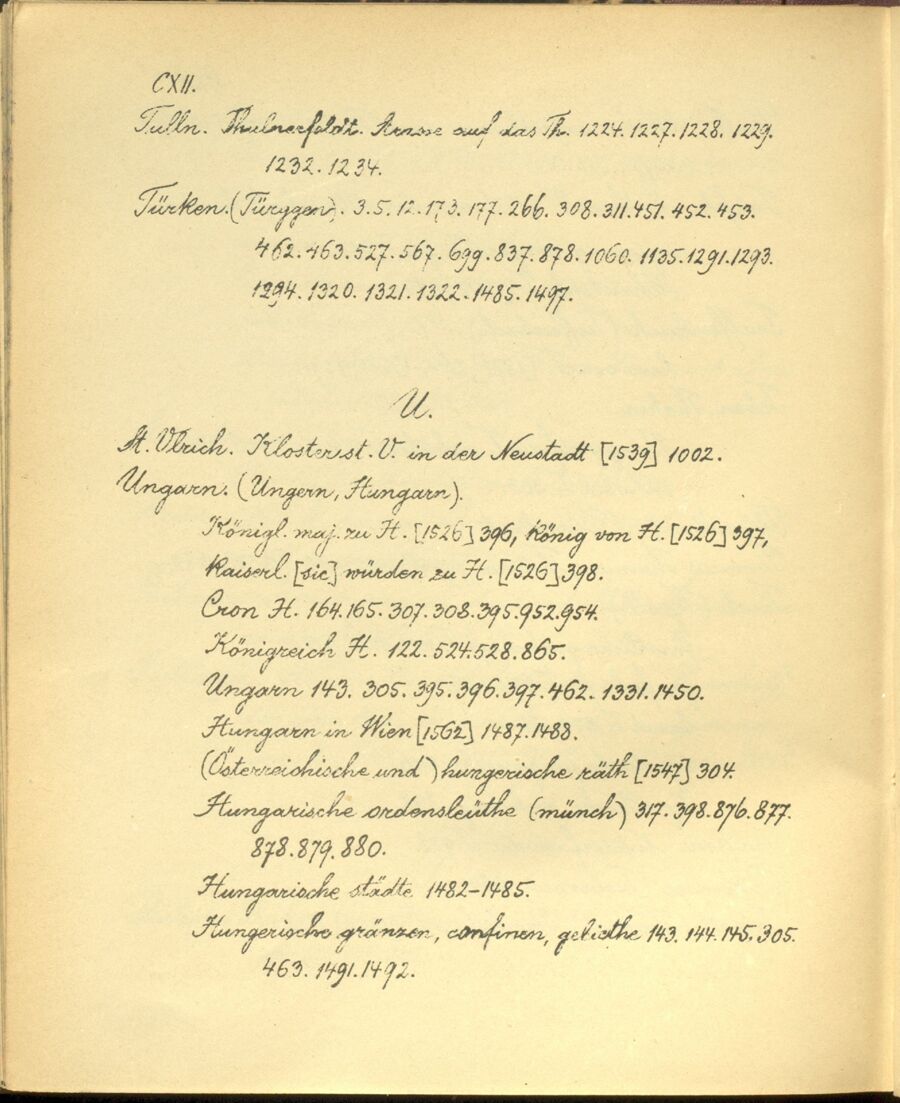 CXII.
Tulln. Thulnerfeldt. Strasse auf das Th. 1224. 1227. 1228. 1229.
1232. 1234.
Türken. (Türygen). 3. 5. 12. 173. 177. 266. 308. 311. 451. 452. 453.
462. 463. 527. 567. 699. 837. 878. 1060. 1135. 1291. 1293.
1294. 1320. 1321. 1322. 1485. 1497.
U.
St. Ulrich. Kloster st. U. in der Neustadt [1539] 1002.
Ungarn. (Ungern, Hungarn).
Königl. maj. zu H. [1526] 396, König von H. [1526] 397,
Kaiserl. [sic] würden zu H. [1526] 398.
Cron H. 164. 165. 307. 308. 395. 952. 954.
Königreich H. 122. 524. 528. 865.
Ungarn 143. 305. 395. 396. 397. 462. 1331. 1450.
Hungarn in Wien [1562] 1487. 1488.
(Österreichische und) hungerische räth [1547] 304.
Hungarische ordensleüthe (münch) 317. 398. 876. 877.
878. 879. 880.
Hungarische städte 1482-1485.
Hungerische gränzen, confinen, geliethe 143. 144. 145. 305.
463. 1491. 1492.